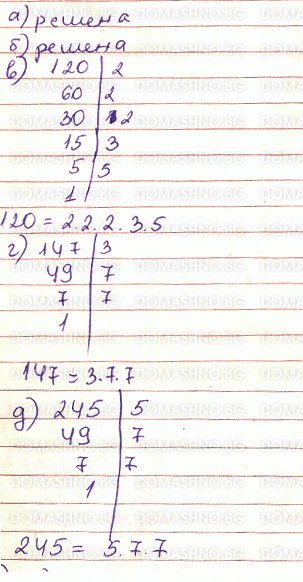 а) решена
б) решена
в) 120 | 2
60 | 2
30 | 2
15 | 3
5 | 5
1
120 = 2.2.2.3.5
г) 147 | 3
49 | 7
7 | 7
1
147 = 3.7.7
д) 245 | 5
49 | 7
7 | 7
1
245 = 5.7.7